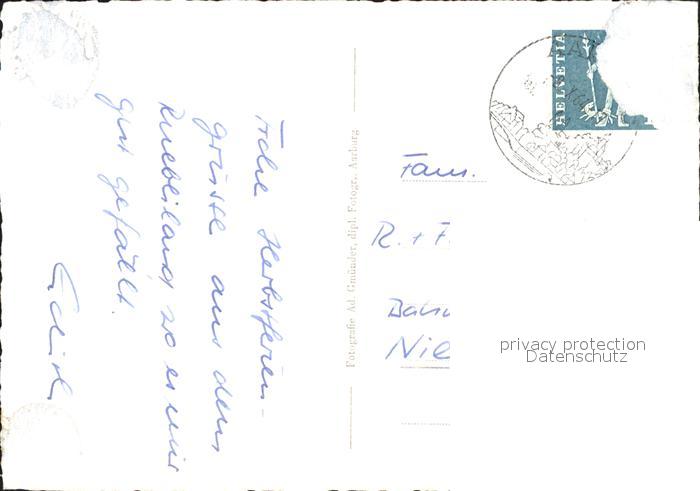 Frohe Herbstferien-
grüsse aus dem
Rüebliland, wo es mir
gut gefällt.
Edith
Fotografie Ad. Gmünder, dipl. Fotogr., Aarburg
HELVETIA
Fam.
R. + F.
Nie
privacy protection
Datenschutz